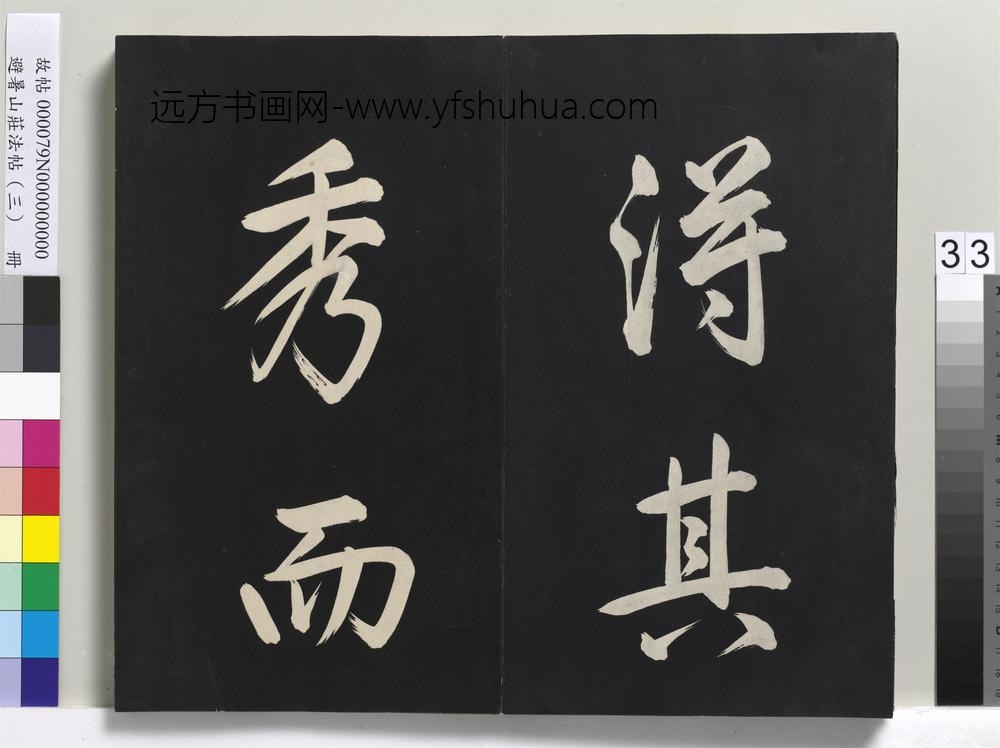 得其
秀而
远方书画网-www.yfshuhua.com
故帖 000079N000000000
避暑山莊法帖（三） 冊
33